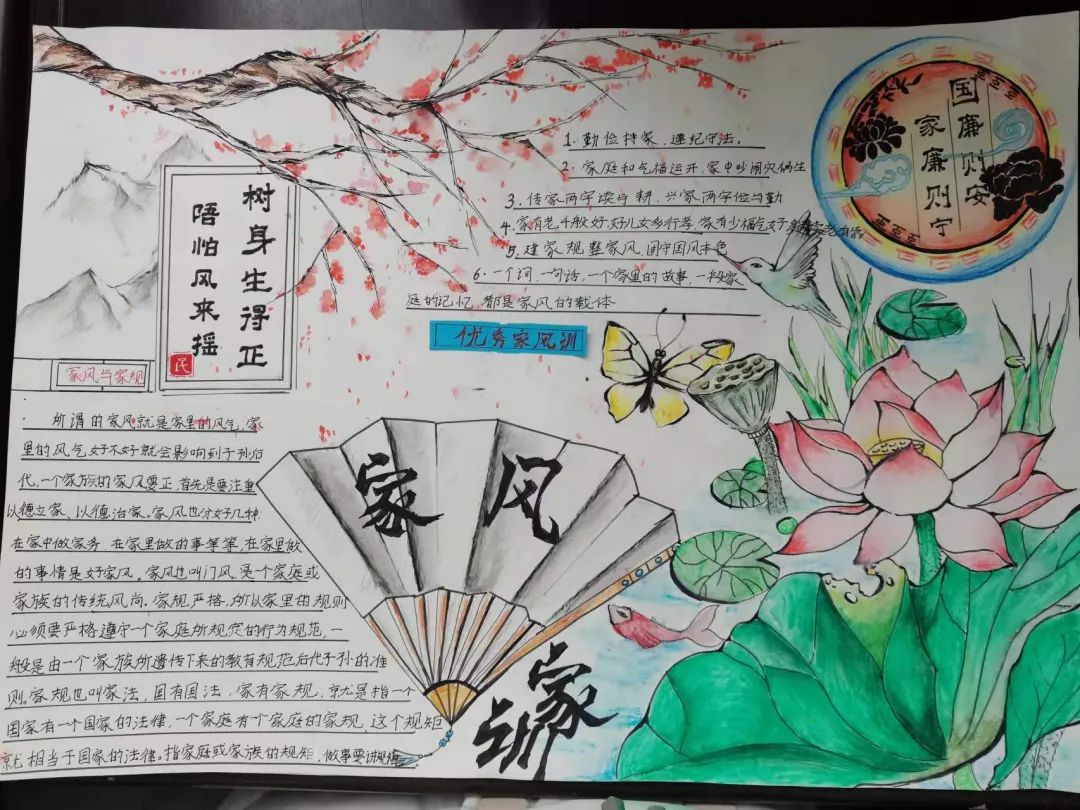 树身生得正
唔怕风来摇
民
1. 勤俭持家、遵纪守法。
2. 家庭和气福运开，家中吵闹灾祸生
3. 传家两字读与耕，兴家两字俭与勤
4. 家有老千般好，好儿女多行孝，家有少福气
5. 建家规整家风，固守国风本色
6. 一个词，一句话，一个家里的故事，一段家
庭的记忆，都是家风的载体
优秀家风训
国廉则安
家廉则宁
家风与家规
所谓的家风就是家里的风气，家
里的风气好不好就会影响到子孙后
代，一个家族的家风要正，首先是要注重
以德立家、以德治家。家风也分好几种
在家中做家务，在家里做的事等等，在家里做
的事情是好家风。家风也叫门风，是一个家庭或
家族的传统风尚。家规严格，所以家里的规则
必须要严格遵守一个家庭所规定的行为规范，一
般是由一个家族所遗传下来的教育规范后代子孙的准
则。家规也叫家法，国有国法，家有家规，就是指一个
国家有一个国家的法律，一个家庭有个家庭的家规，这个规矩
就相当于国家的法律。指家庭或家族的规矩，做事要讲规矩
家风
家训